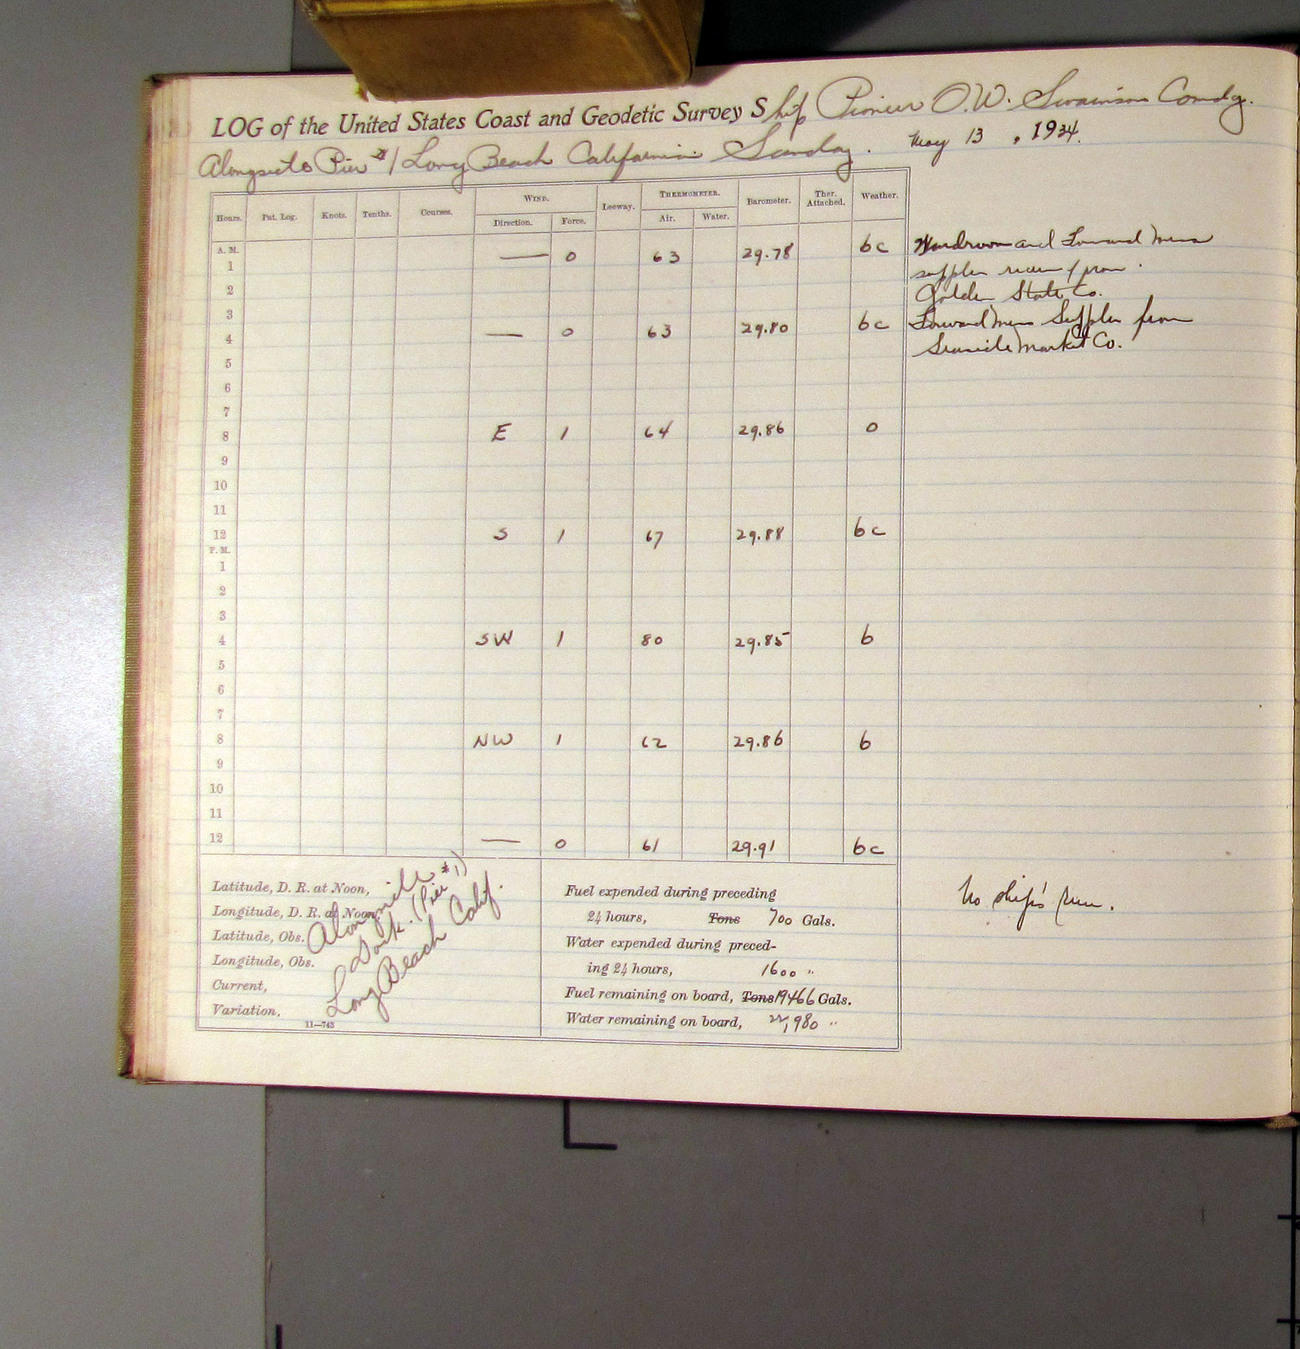 LOG of the United States Coast and Geodetic Survey Ship Pioneer O.W. Swainson Comdg.
Alongside Pier #1 Long Beach California Sunday. May 13, 1934.
Hours. Pat. Log. Knots. Tenths. Courses. WIND. Leeway. THERMOMETER. Barometer. Ther. Attached. Weather.
Direction. Force. Air. Water.
A. M.
1 — 0 63 29.78 bc Wardroom and Forward Mess
2 supplies from
Golden State Co.
3
4 — 0 63 29.80 bc Forward Mess Supplies from
Seaside Market Co.
5
6
7
8 E 1 64 29.86 o
9
10
11
12 S 1 67 29.88 bc
P. M.
1
2
3
4 SW 1 80 29.85 b
5
6
7
8 NW 1 62 29.86 b
9
10
11
12 — 0 61 29.91 bc
Latitude, D. R. at Noon,
Longitude, D. R. at Noon,
Latitude, Obs.
Longitude, Obs.
Current,
Variation,
11—743
Dock. (Pier #1)
Long Beach Calif.
Fuel expended during preceding
24 hours, Tons 700 Gals.
Water expended during preced-
ing 24 hours, 1600 "
Fuel remaining on board, Tons 19466 Gals.
Water remaining on board, 22,980 "
No ship's run.